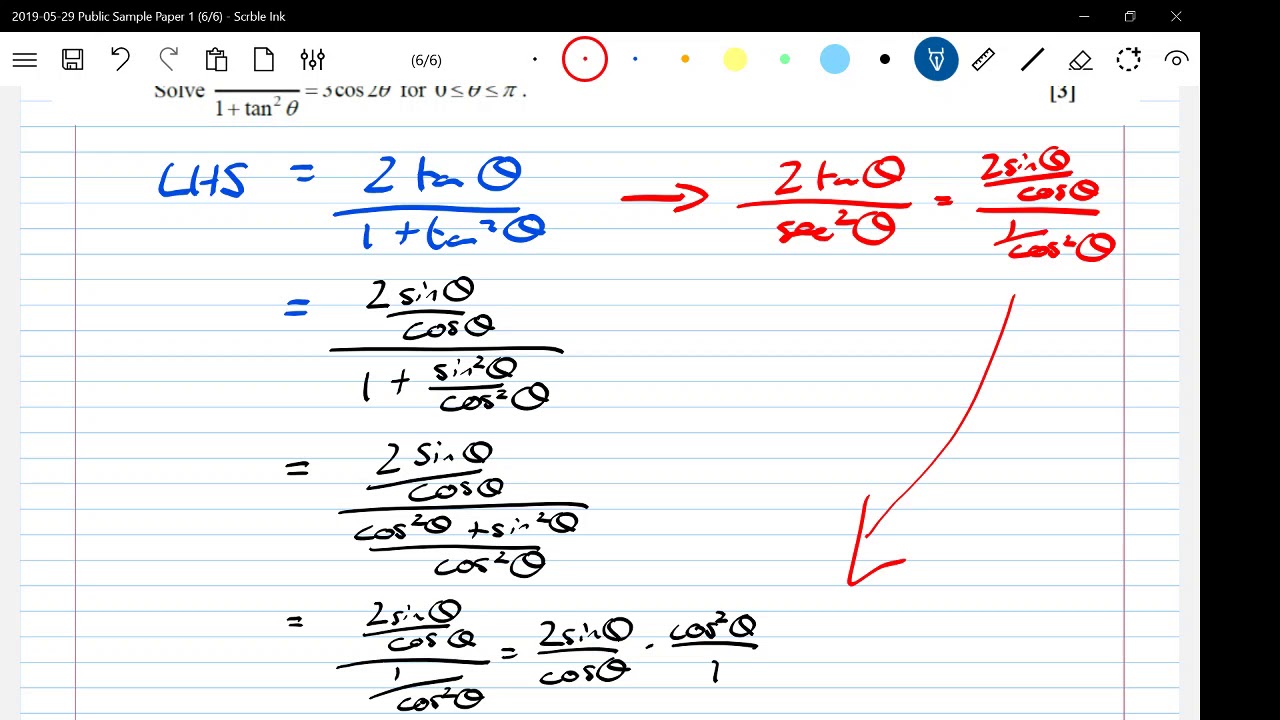 2019-05-29 Public Sample Paper 1 (6/6) - Scrble Ink
(6/6)
Solve /(1 + tan² θ) = 3cos2θ for 0 ≤ θ ≤ π . [3]
LHS = (2 tan θ)/(1 + tan² θ) → (2 tan θ)/(sec² θ) = (2sinθ/cosθ)/(1/cos² θ)
= (2 sinθ/cosθ)/(1 + sin²θ/cos²θ)
= (2 sinθ/cosθ)/((cos²θ + sin²θ)/cos²θ)
= (2sinθ/cosθ)/(1/cos²θ) = 2sinθ/cosθ · cos²θ/1